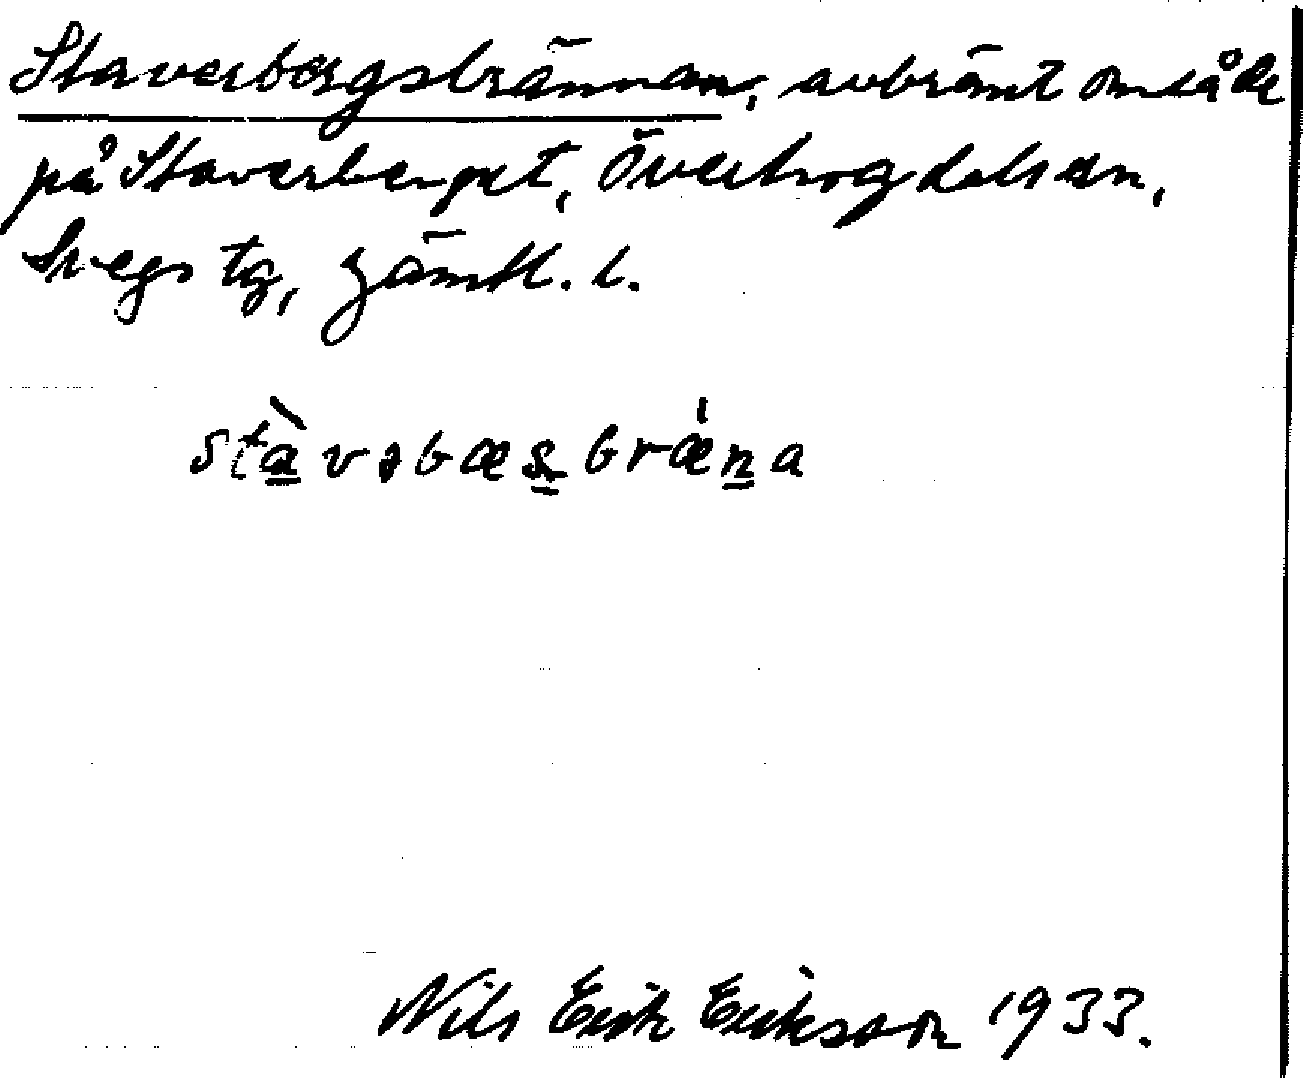 Staverbergsbrännan, avbränt område
på Staverberget, Överhogdals sn,
Svegs tg, Jämtl. l.
stàvəbæʂbrǽna
Nils Erik Eriksson 1933.